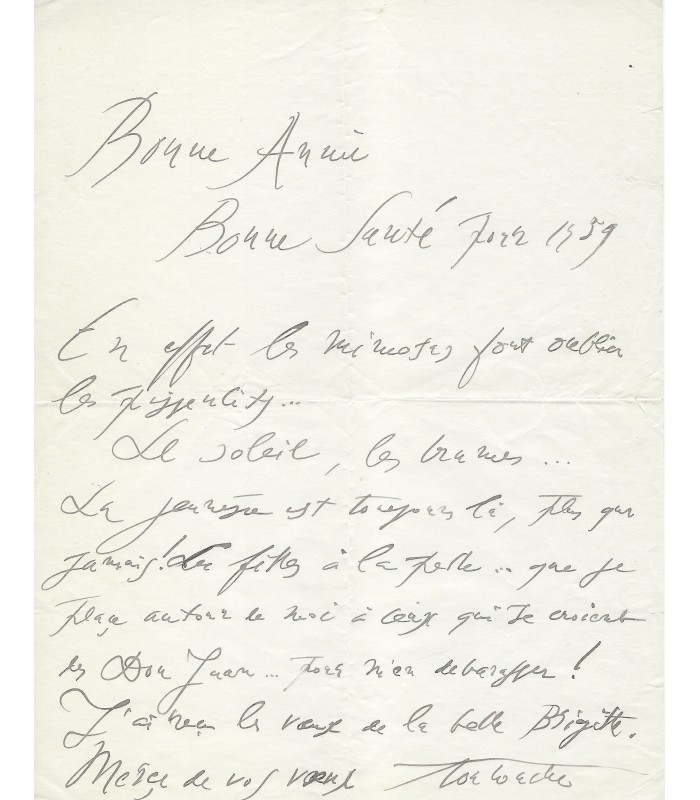 Bonne Année
Bonne Santé pour 1959
En effet les mimosas font oublier
les pissenlits...
Le soleil, les brumes...
La jeunesse est toujours là, plus que
jamais! Les filles à la pelle... que je
place autour de moi à ceux qui se croient
des Don Juan... pour m'en debarasser!
J'ai reçu les vœux de la belle Brigitte.
Merçi de vos vœux